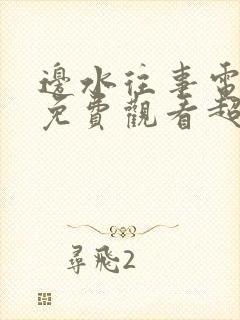 邊水往事電
免費觀看超
尋飛2